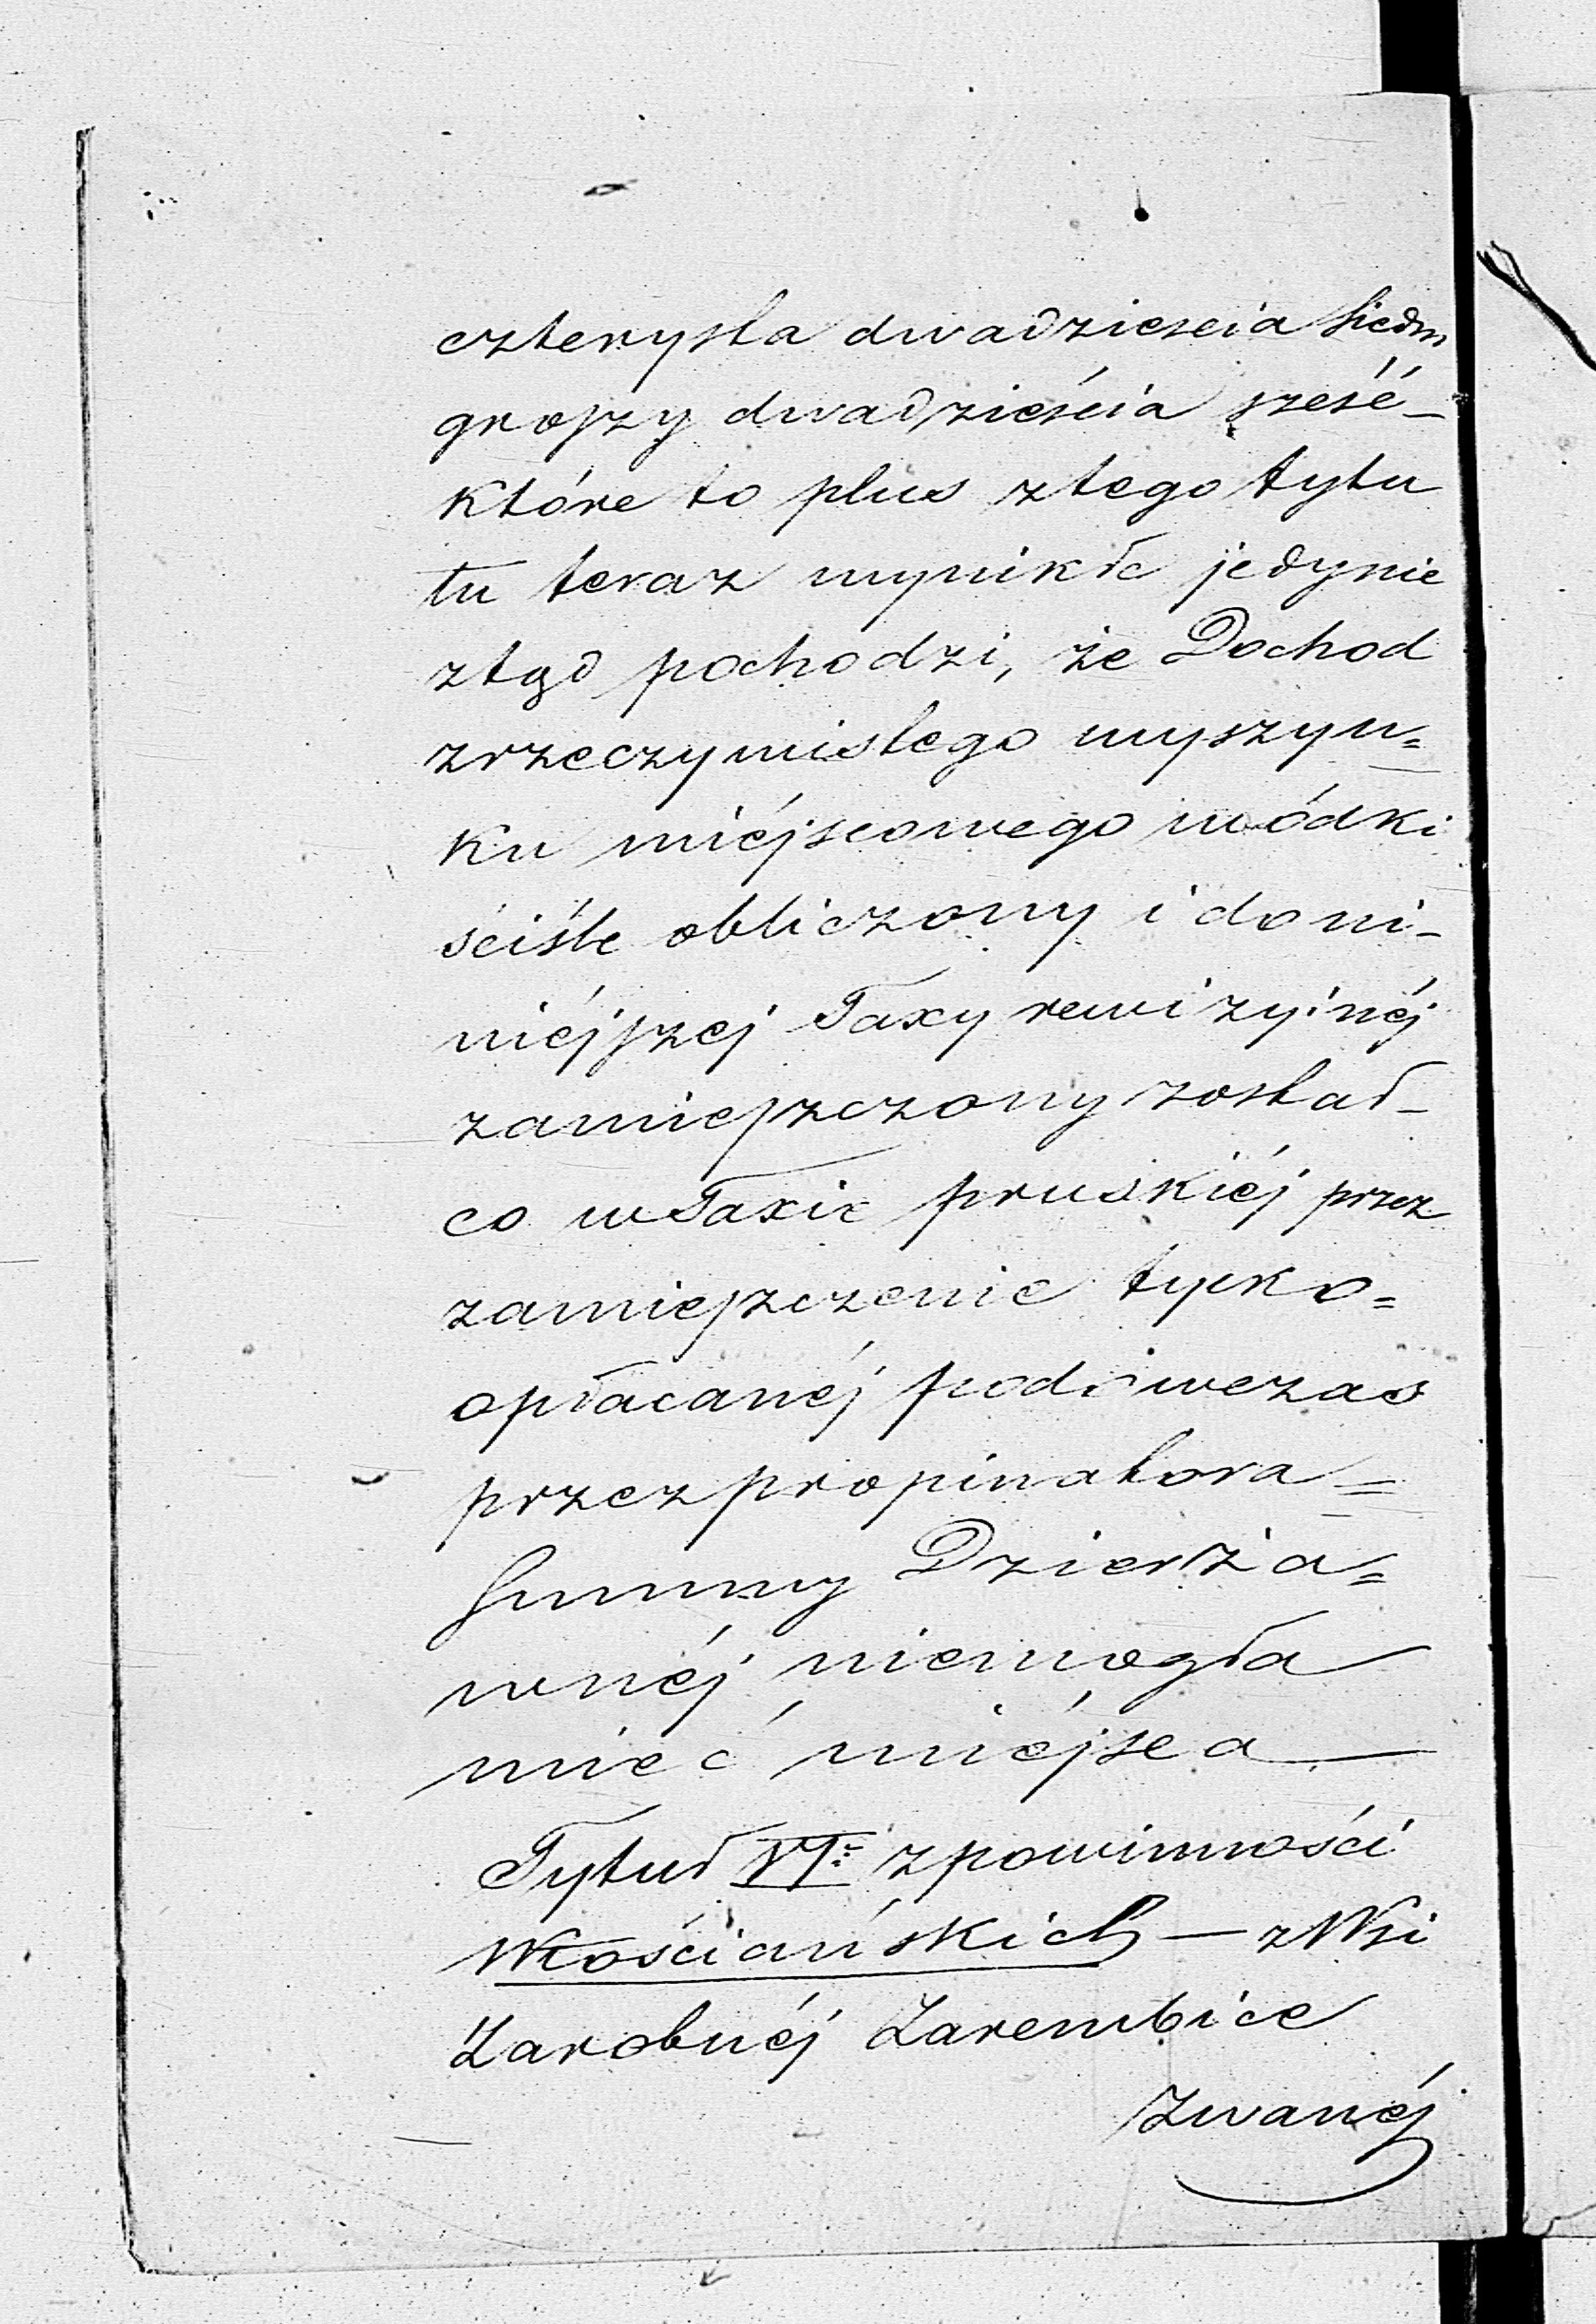 czterysta dwadziescia siedm
groszy dwadzieścia sześć_
które to plus ztego tytu
tu teraz wynikłe jedynie
ztąd pochodzi, że Dochod
zrzeczywistego wyszyn=
ku miéjscowego wódki
ściśle obliczony i do ni_
niéjszej Taxy rewizyinéj
zamieszczony został_
co w Taxie pruskiéj przez
zamieszczenie tylko=
opłacanéj podówczas
przez propinatora=
Summy Dzierża=
wnéj niemogła
mieć miéjsca —
Tytuł VI: z powinności
Włościańskich — z Wsi
Zarobnéj Zarembice
Zwanéj